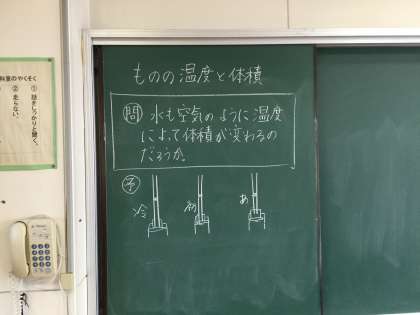 室のやくそく
① 話をしっかりと聞く。
② 走らない。
ものの温度と体積
問 水も空気のように温度
によって体積が変わるの
だろうか。
予
冷 初 あ